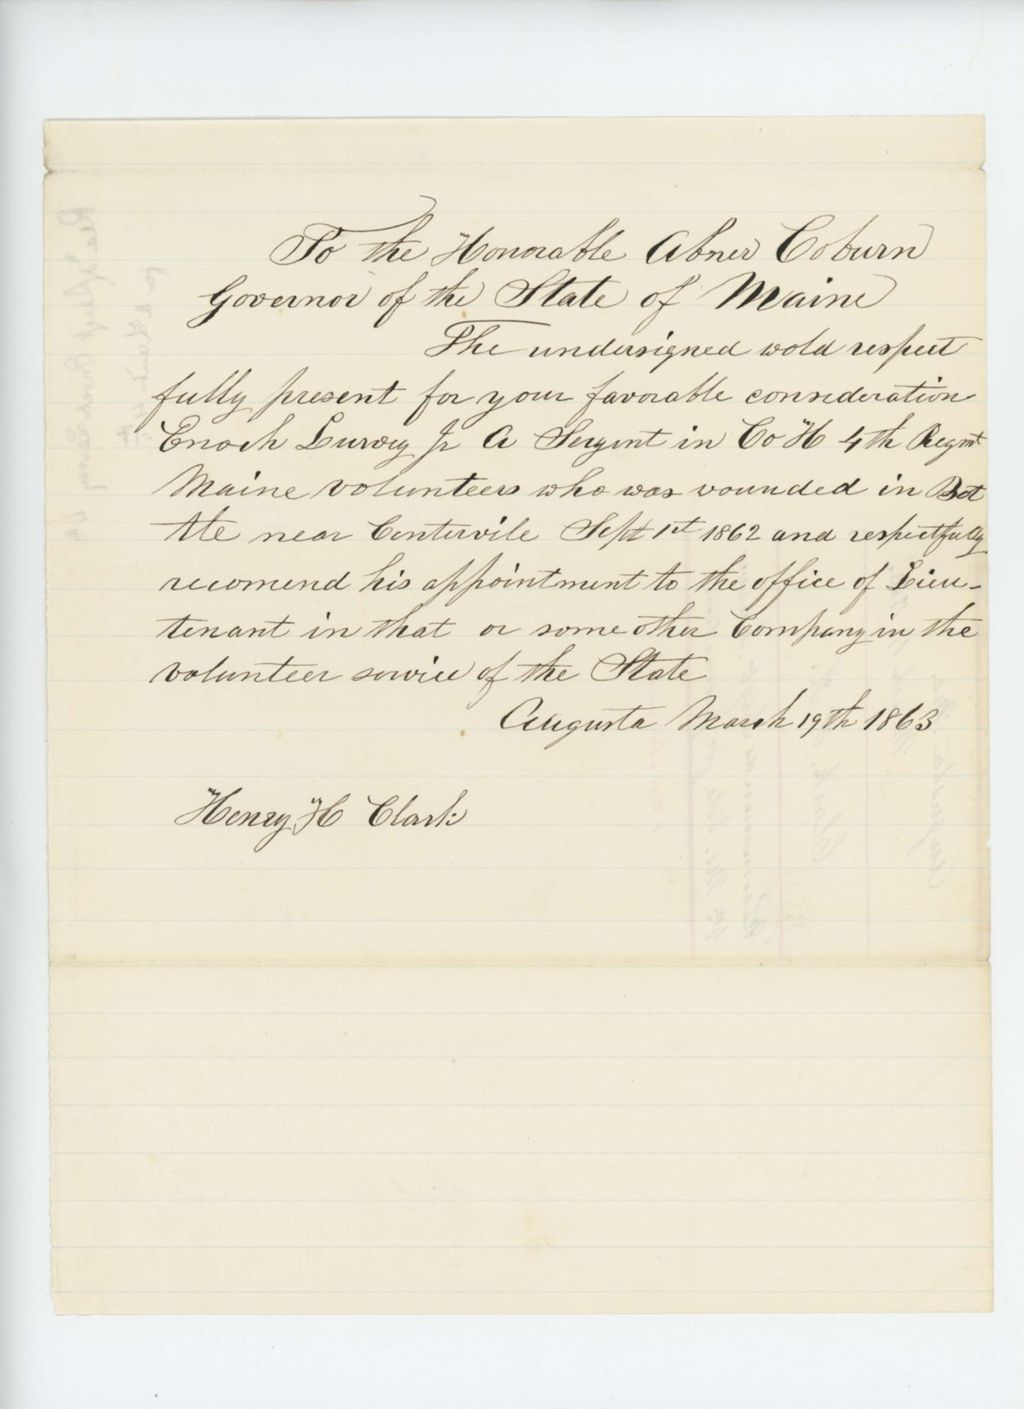 To the Honorable Abner Coburn
Governor of the State of Maine
The undersigned wold respect
fully present for your favorable consideration
Enoch Lurvey Jr A Sergent in Co H 4th Regmt
Maine volunteers who was wounded in Bat
tle near Centervile Sept 1st 1862 and respectfully
recomend his appointment to the office of Lieu-
tenant in that or some other Company in the
volunteer service of the State
Augusta March 19th 1863
Henry H Clark